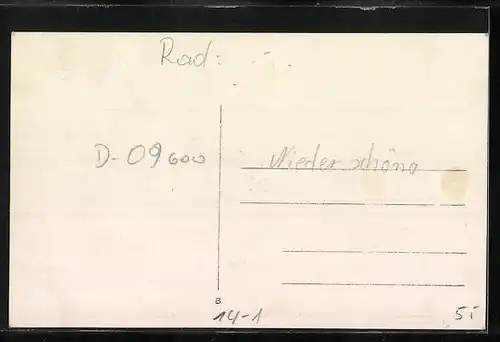 Rad:
D-09600 Niederschöna
B
14-1 5T